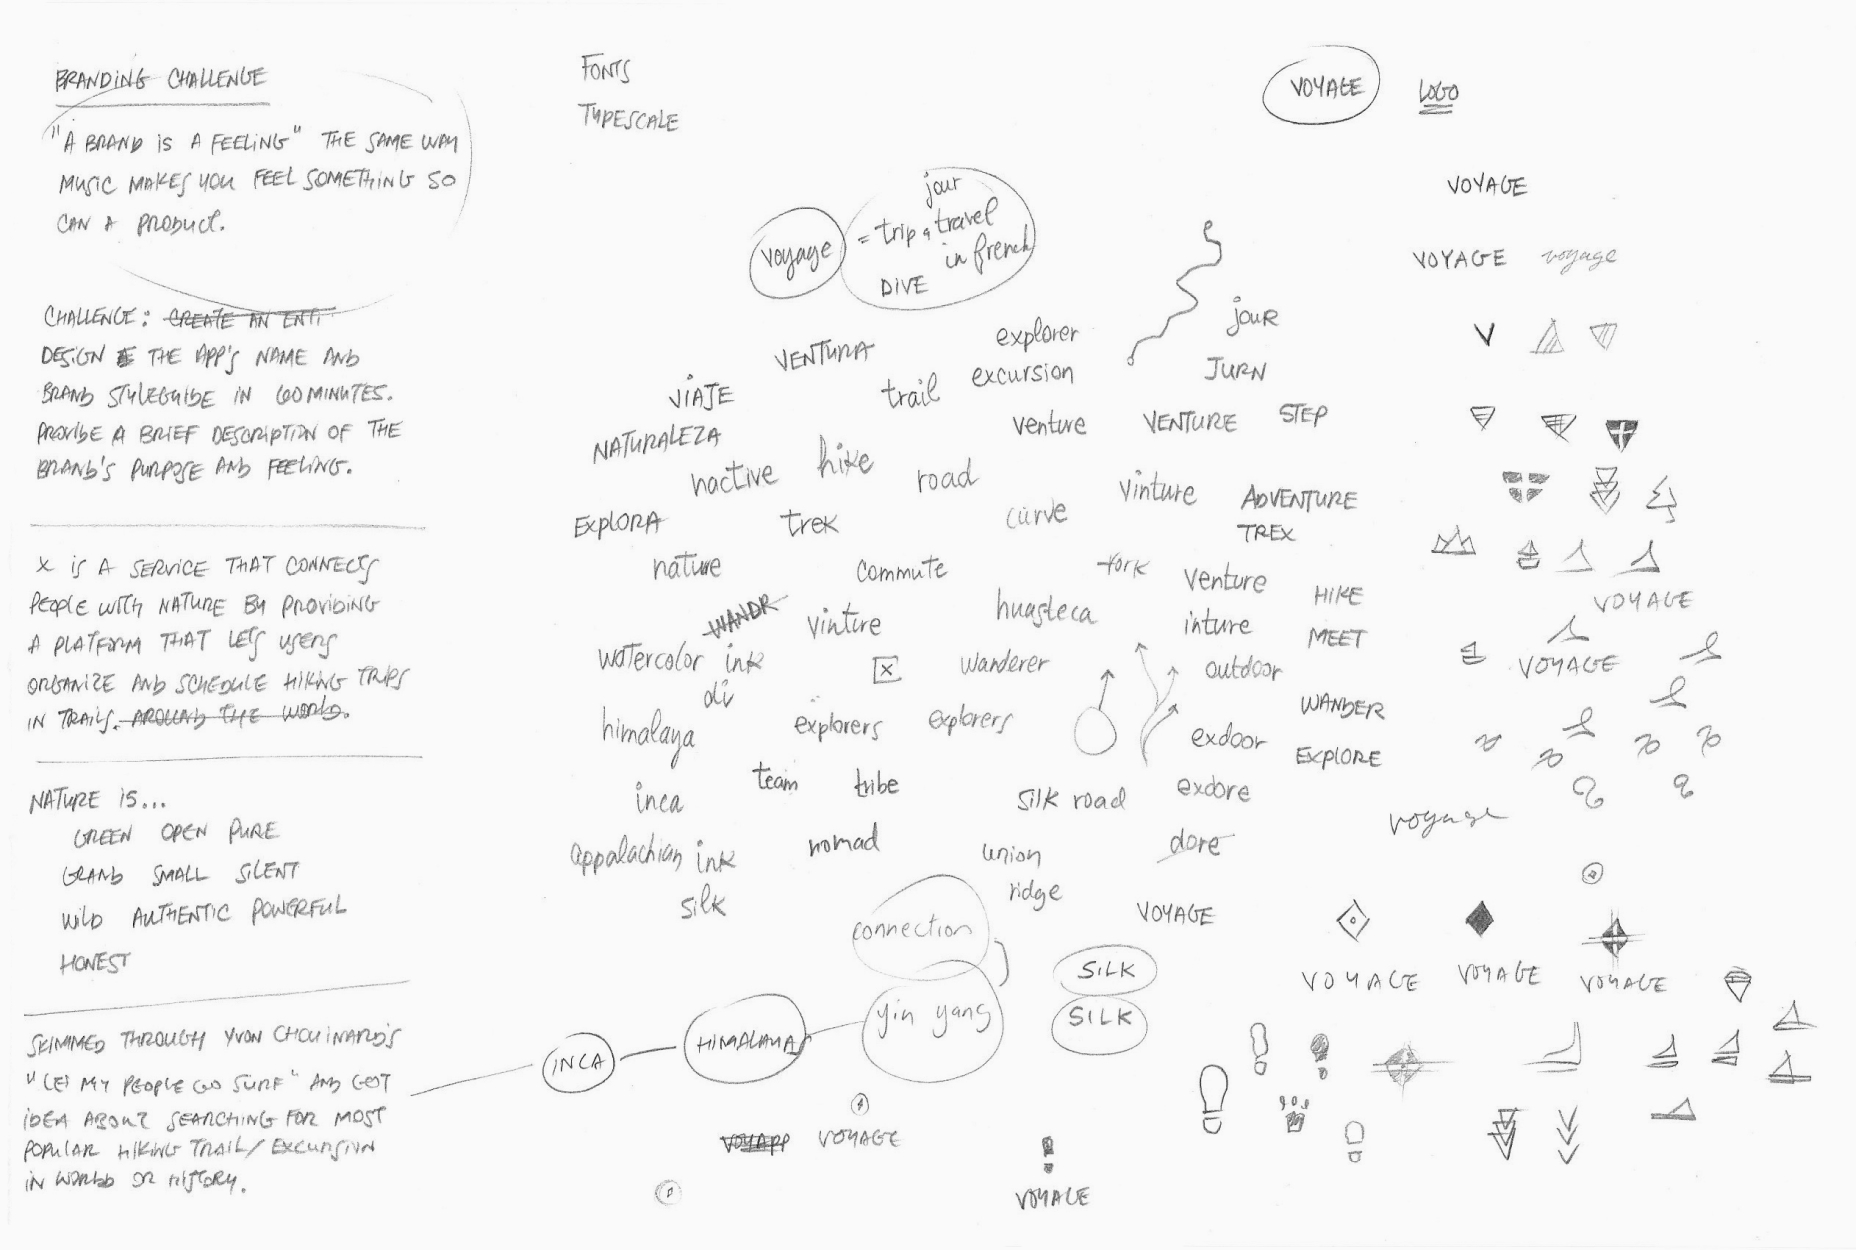 BRANDING CHALLENGE
"A BRAND IS A FEELING" THE SAME WAY
MUSIC MAKES YOU FEEL SOMETHING SO
CAN A PRODUCT.
CHALLENGE: CREATE AN ENTI
DESIGN THE APP'S NAME AND
BRAND STYLEGUIDE IN 60 MINUTES.
PROVIDE A BRIEF DESCRIPTION OF THE
BRAND'S PURPOSE AND FEELING.
X IS A SERVICE THAT CONNECTS
PEOPLE WITH NATURE BY PROVIDING
A PLATFORM THAT LETS USERS
ORGANIZE AND SCHEDULE HIKING TRIPS
IN TRAILS. AROUND THE WORLD.
NATURE IS...
GREEN OPEN PURE
GRAND SMALL SILENT
WILD AUTHENTIC POWERFUL
HONEST
SKIMMED THROUGH YVON CHOUINARD'S
"LET MY PEOPLE GO SURF" AND GOT
IDEA ABOUT SEARCHING FOR MOST
POPULAR HIKING TRAIL/EXCURSION
IN WORLD OR HISTORY.
FONTS
TYPESCALE
jour
voyage = trip, travel
in french
DIVE
VENTURA
explorer
VIAJE
trail
excursion
NATURALEZA
venture
VENTURE
STEP
jOUR
JURN
nactive
hike
road
vinture
ADVENTURE
EXPLORA
trek
curve
TREX
nature
commute
fork
venture
HIKE
WANDR
vinture
huasteca
inture
MEET
watercolor
ink
X
wanderer
outdoor
di
WANDER
himalaya
explorers
explorers
exdoor
EXPLORE
inca
team
tribe
silk road
exdore
appalachian
ink
nomad
union
ridge
dore
silk
connection
VOYAGE
SILK
SILK
INCA
HIMALAYA
yin yang
VOYAPP
VOYAGE
VOYAGE
VOYAGE
LOGO
VOYAGE
VOYAGE
voyage
V
VOYAGE
VOYAGE
voyage
VOYAGE
VOYAGE
VOYAGE